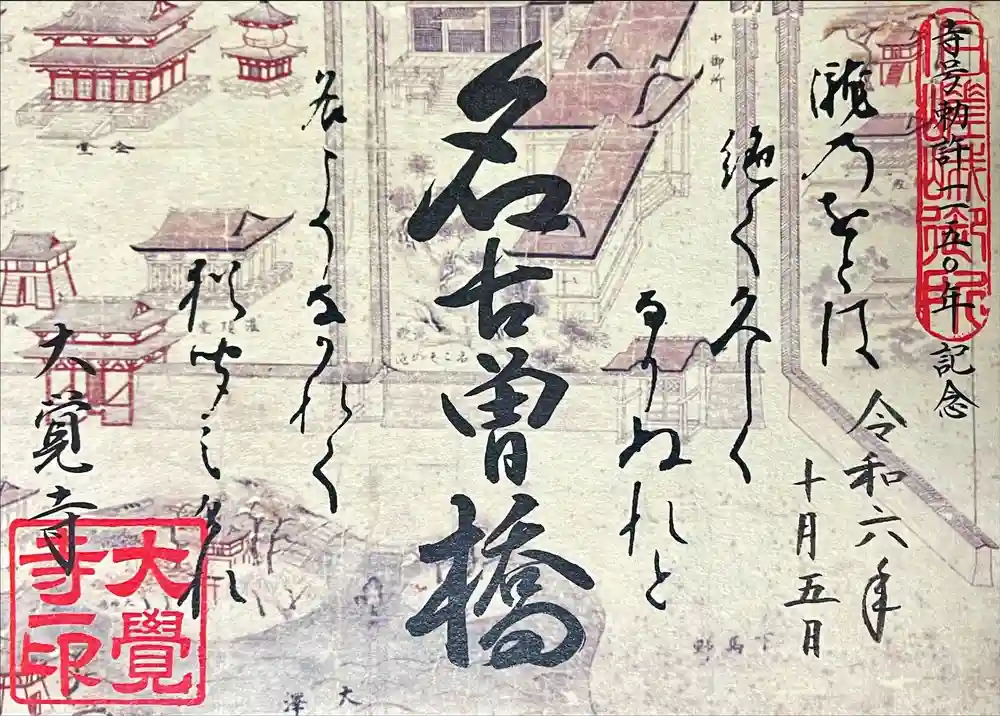 寺号勅許一一五〇年 記念
令和六年
十月五月
瀧乃をとは
絶て久しく
なりぬれと
名古曽橋
名こそなかれて
猶聞こえけれ
大覚寺
大覺寺印
金堂
中御所
灌頂堂
大澤